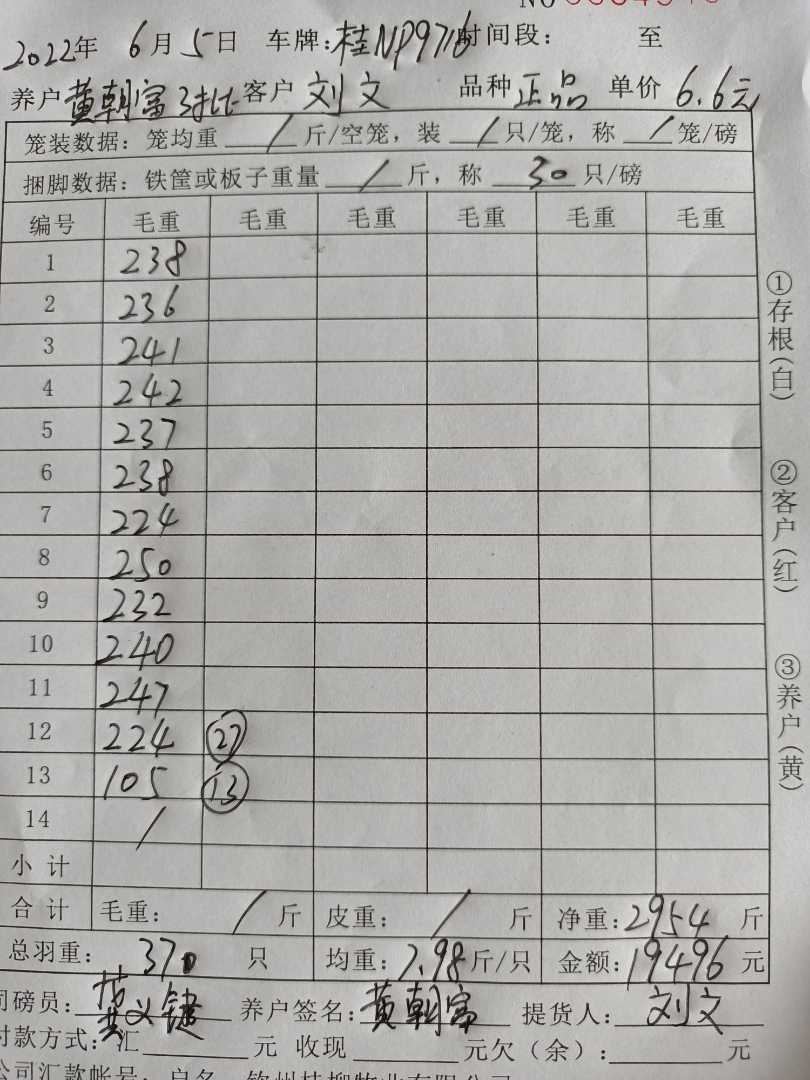 NO
2022年 6月5日 车牌:桂NP9716时间段: 至
养户 黄朝富 客户 刘文 品种 正品 单价 6.6元
笼装数据:笼均重 / 斤/空笼,装 / 只/笼,称 / 笼/磅
捆脚数据:铁筐或板子重量 / 斤,称 30 只/磅
编号 毛重 毛重 毛重 毛重 毛重 毛重
1 238
2 236
3 241
4 242
5 237
6 238
7 224
8 250
9 232
10 240
11 247
12 224 27
13 105 13
14 /
小计
合计 毛重: / 斤 皮重: / 斤 净重:2954 斤
总羽重: 370 只 均重:7.98斤/只 金额:19496元
司磅员:黄义键 养户签名:黄朝富 提货人:刘文
付款方式:汇 元 收现 元欠(余): 元
公司汇款帐号:户名
①存根(白) ②客户(红) ③养户(黄)